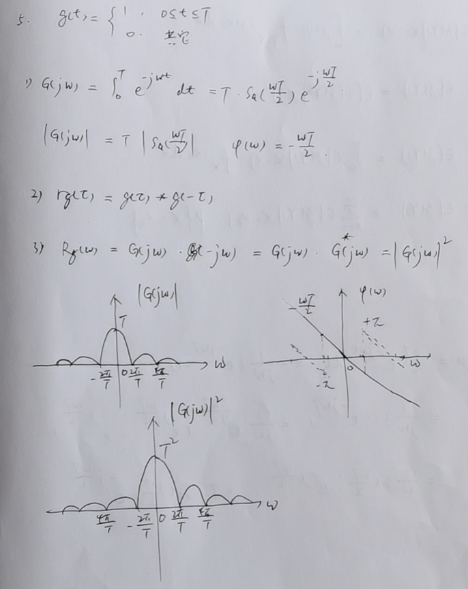 5. g(t) = { 1, 0≤t≤T
0. 其它
1) G(jω) = ∫₀ᵀ e^{-jωt} dt = T · Sa(ωT/2) e^{-jωT/2}
|G(jω)| = T |Sa(ωT/2)| φ(ω) = -ωT/2
2) rg(τ) = g(τ) * g(-τ)
3) Rg(ω) = G(jω) · G(-jω) = G(jω) · G*(jω) = |G(jω)|²
|G(jω)| φ(ω)
T -ωT/2 +π
-2π/T 0 2π/T 4π/T ω -π 0 ω
|G(jω)|²
T²
4π/T -2π/T 0 2π/T 4π/T ω